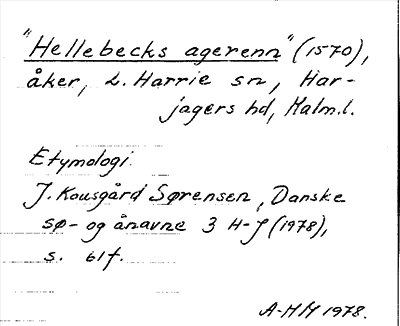 "Hellebecks agerenn" (1570),
åker, L. Harrie sn, Har-
jagers hd, Malm.l.
Etymologi.
J. Kousgård Sørensen, Danske
sø- og ånavne 3 H-J (1978),
s. 61f.
A-MM 1978.